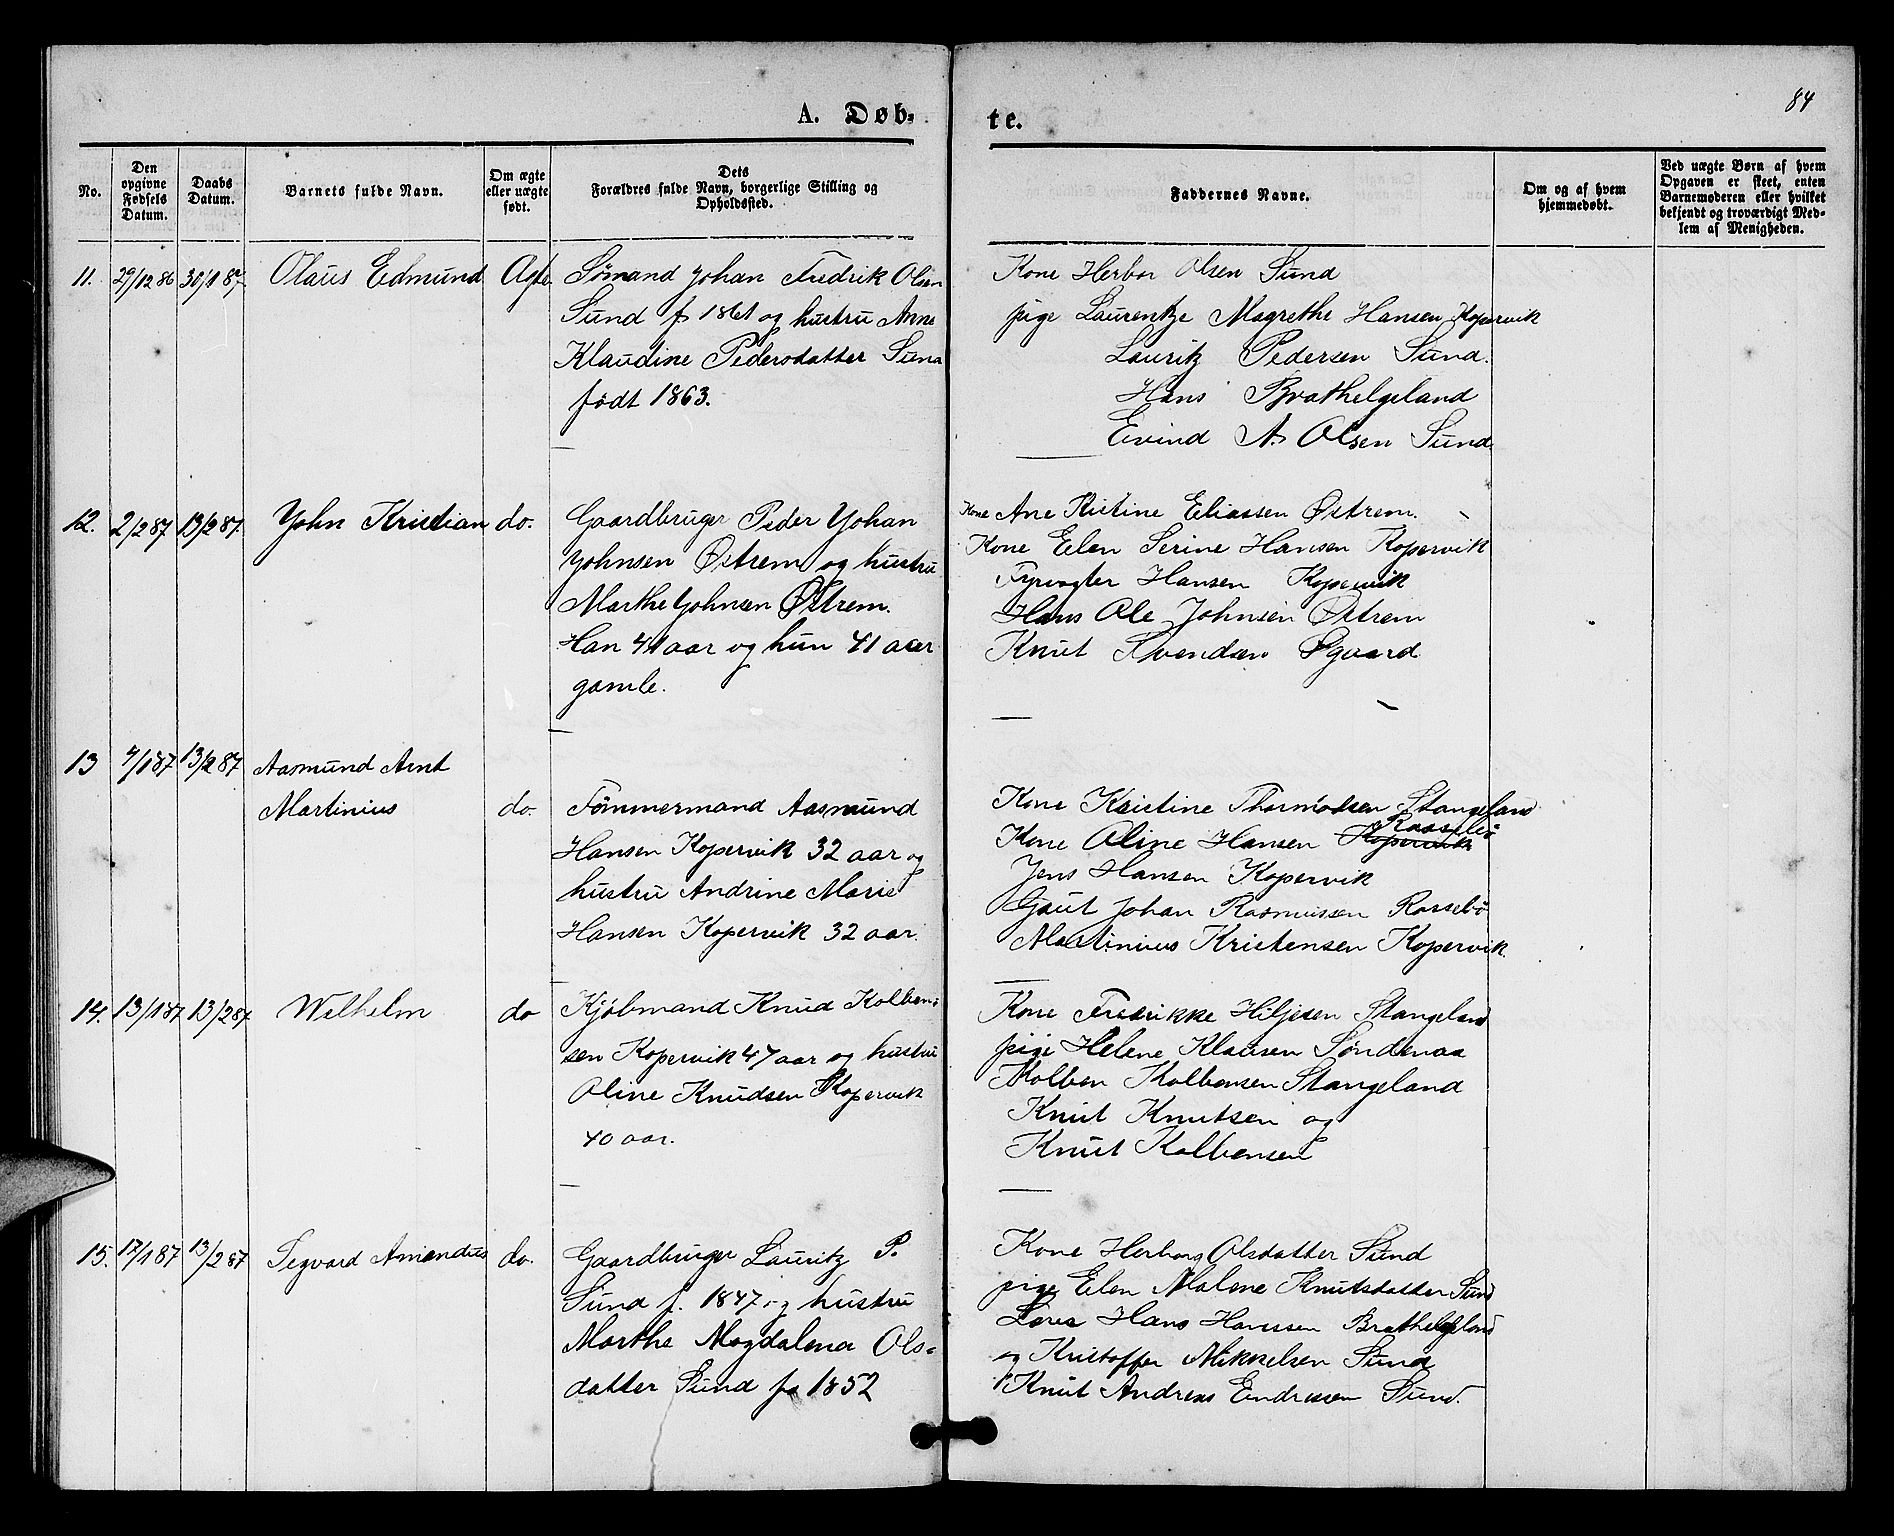 84
A. Døb-
te.
No.
Den opgivne Fødsels Datum.
Daabs Datum.
Barnets fulde Navn.
Om ægte eller uægte født.
Dets Forældres fulde Navn, borgerlige Stilling og Opholdssted.
Faddernes Navne.
Om og af hvem hjemmedøbt.
Ved uægte Børn af hvem Opgaven er skeet, enten Barnemoderen eller hvilket bekjendt og troværdigt Medlem af Menigheden.
11. 29/12 86 30/1 87 Olaus Edmund Ægte
Sömand Johan Fredrik Olsen
Sund f 1861 og hustru Anne
Klaudine Pedersdatter Sund
födt 1863.
Kone Herbor Olsen Sund
pige Laurentze Magrethe Hansen Kopervik
Lauritz Pedersen Sund.
Hans Brathelgeland
Eivind A. Olsen Sund
12. 2/2 87 13/2 87 John Kristian do.
Gaardbruger Peder Johan
Johnsen Østrem og hustru
Marthe Johnsen Østrem.
Han 41 aar og hun 41 aar
gamle.
Kone Ane Kistine Eliassen Østrem.
Kone Elen Serine Hansen Kopervik
Fyrvogter Hansen Kopervik
Hans Ole Johnsen Østrem
Knut Svendsen Øgaard
13 4/1 87 13/2 87 Aasmund Arnt
Martinius do.
Tömmermand Aasmund
Hansen Kopervik 32 aar og
hustru Andrine Marie
Hansen Kopervik 32 aar.
Kone Kristine Thormodsen Stangeland
Kone Oline Hansen Kopervik Rossebö
Jens Hansen Kopervik
Gaut Johan Rasmussen Rossebö
Martinius Kristensen Kopervik.
14. 13/1 87 13/2 87 Wilhelm do
Kjöbmand Knud Kolben-
sen Kopervik 47 aar og hustru
Oline Knudsen Kopervik
40 aar.
Kone Fredrikke Hiljesen Stangeland
pige Helene Klausen Söndenaa
Kolben Kolbensen Stangeland
Knut Knutsen og
Knut Kolbensen
15. 17/1 87 13/2 87 Segvard Amandus do.
Gaardbruger Lauritz P.
Sund f. 1847 og hustru
Marthe Magdalena Ols-
datter Sund f. 1852
Kone Herborg Olsdatter Sund
pige Elen Malene Knutsdatter Sund
Hans Hanssen Brathelgeland
og Kristoffer Mikkelsen Sund
Knut Andreas Endressen Sund.